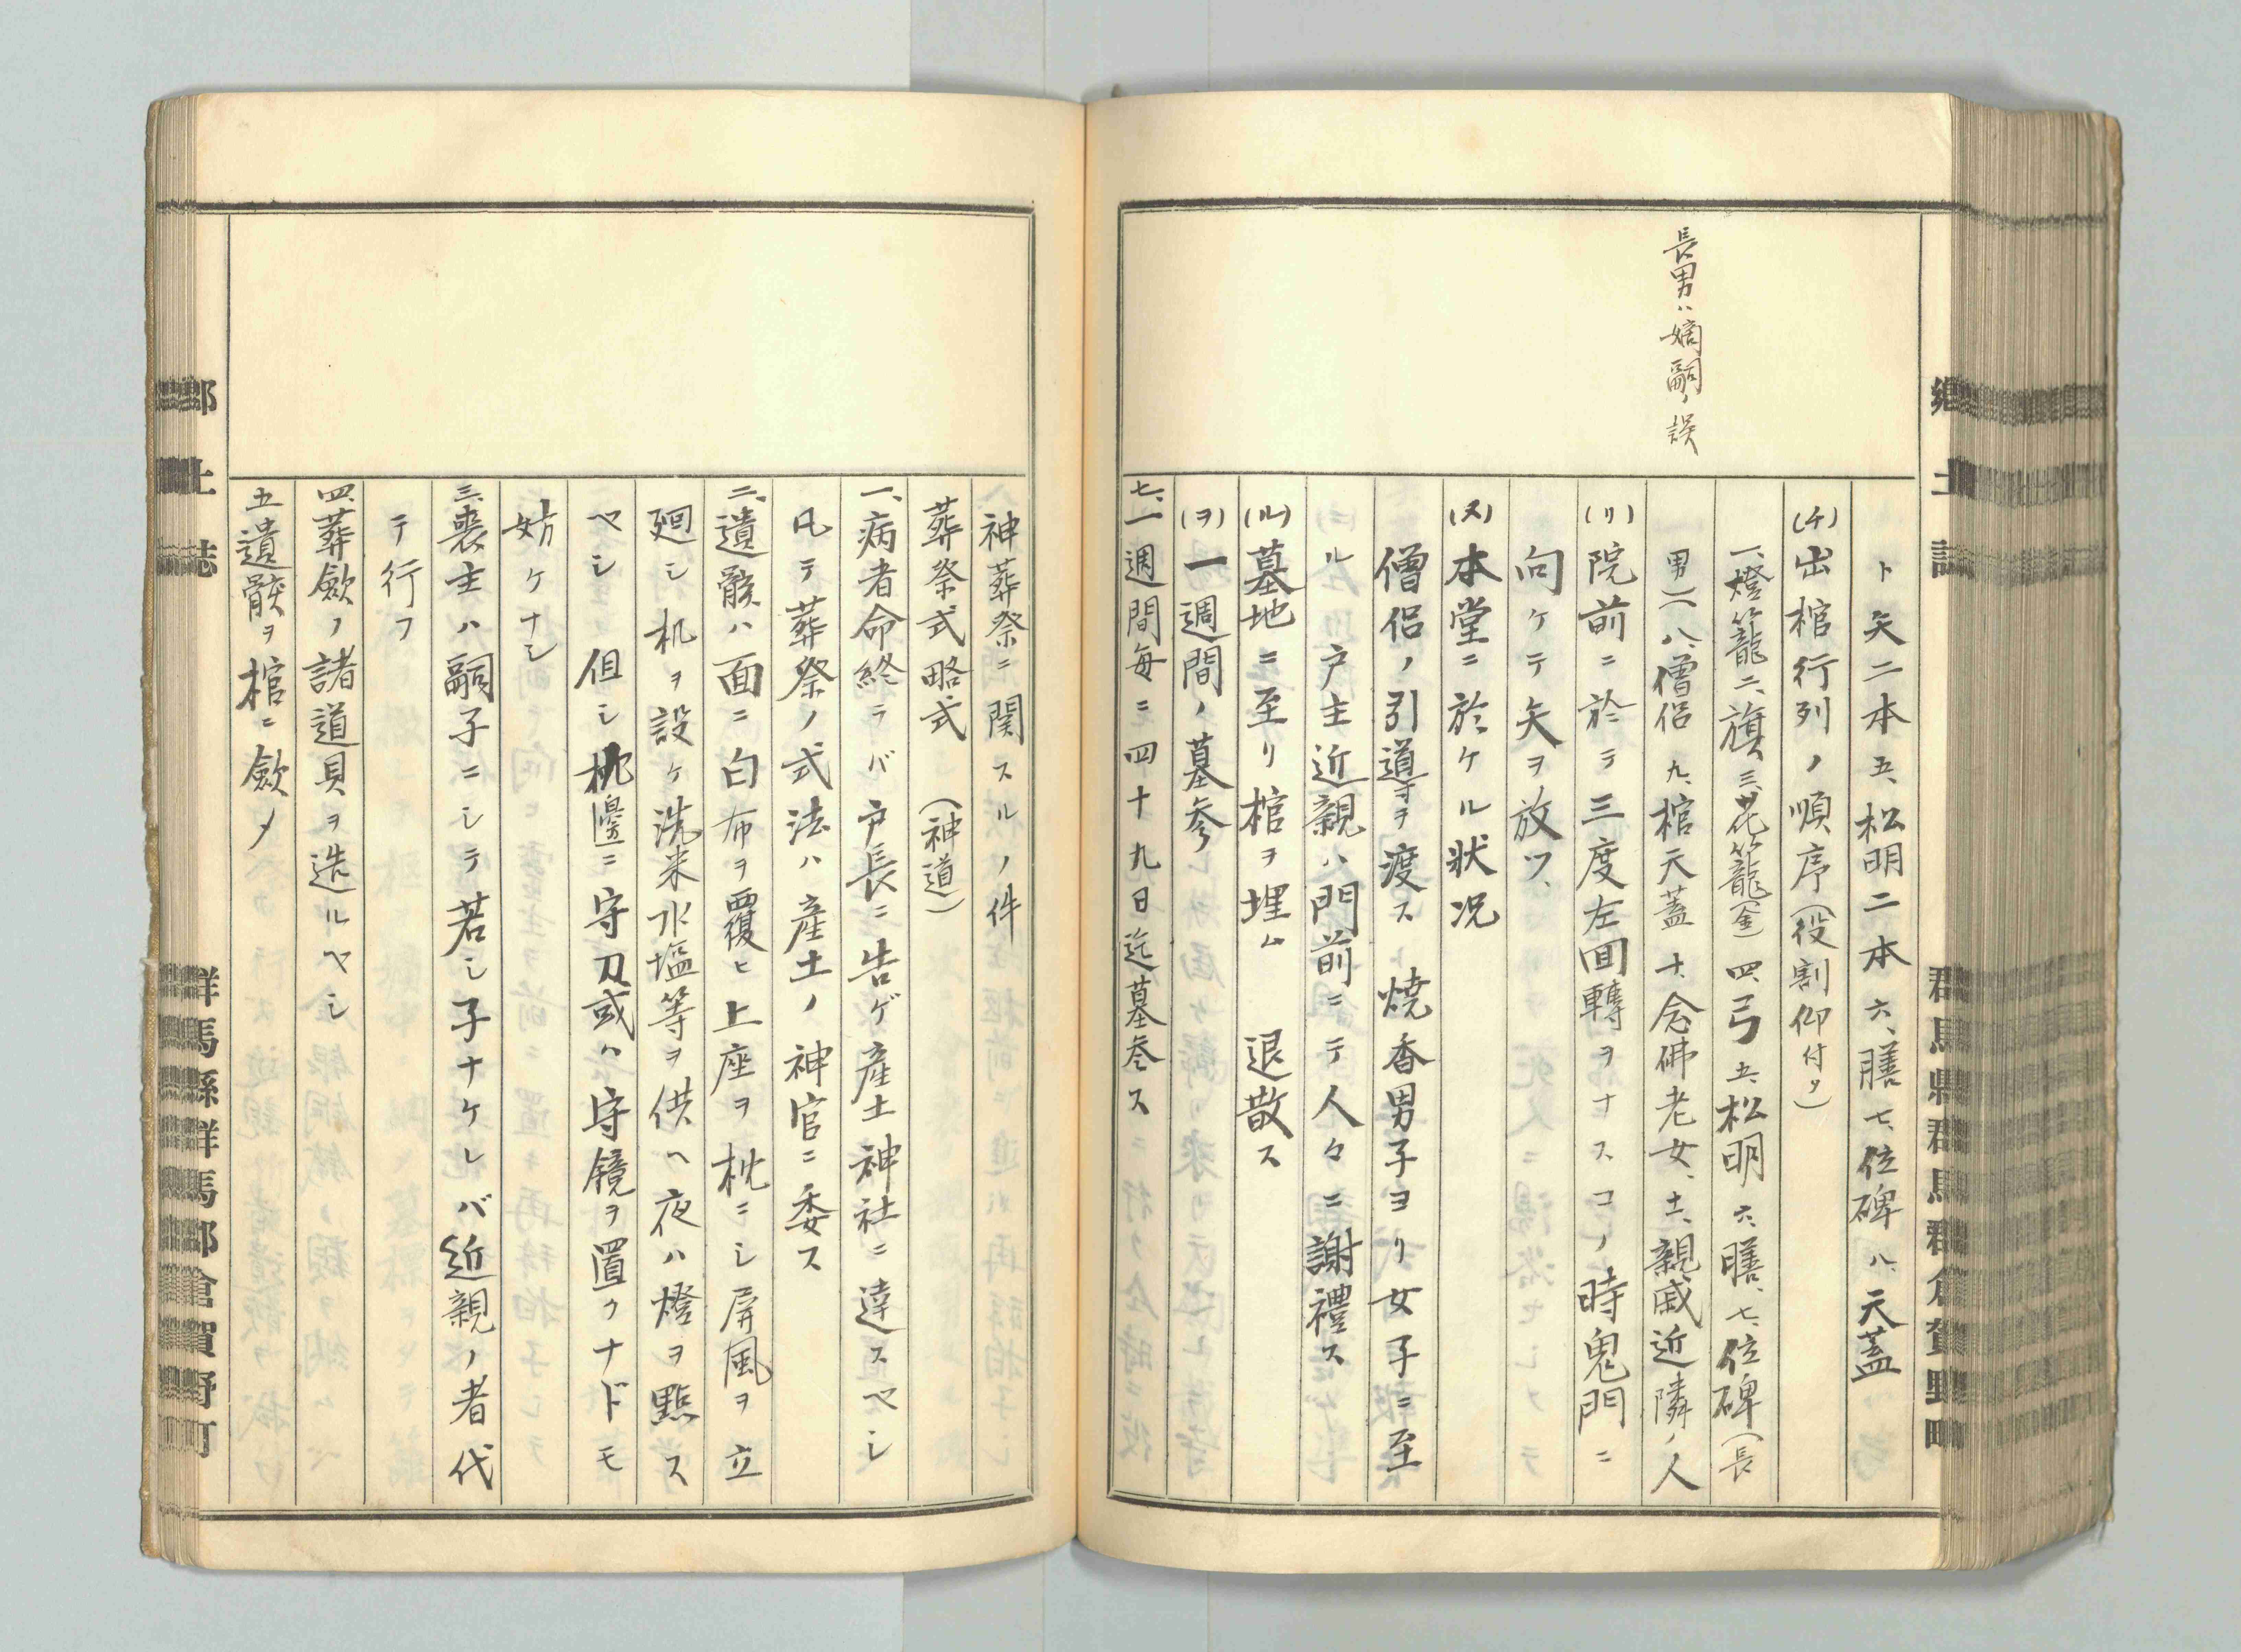 郷土誌
群馬縣群馬郡倉賀野町
長男ハ嫡嗣ノ誤
ト矢二本 五、松明二本 六、膳 七、位碑 八、天蓋
(チ)出棺行列ノ順序(役割仰付ク)
一、燈籠 二、旗 三、花籠(金) 四、弓 五、松明 六、膳、 七、位碑(長
男)(八、僧侶 九、棺天蓋 十、念佛老女、十一、親戚近隣ノ人
(リ)院前ニ於テ三度左回轉ヲナスコノ時鬼門ニ
向ケテ矢ヲ放ツ、
(ヌ)本堂ニ於ケル状况
僧侶ノ引導ヲ渡ス 焼香男子ヨリ女子ニ至
ル 戸主近親ハ門前ニテ人々ニ謝禮ス
(ル)墓地ニ至リ棺ヲ埋ム 退散ス
(ヲ)一週間ノ墓参
七、一週間毎ニ四十九日迄墓参ス
八神葬祭ニ関スルノ件
葬祭式略式 (神道)
一、病者命終ラバ戸長ニ告ゲ産土神社ニ達スベシ
凡テ葬祭ノ式法ハ産土ノ神官ニ委ス
二、遺骸ハ面ニ白布ヲ覆ヒ上座ヲ枕ニシ屏風ヲ立
廻シ机ヲ設ケ洗米水塩等ヲ供ヘ夜ハ燈ヲ點ス
ベシ 但シ枕邊ニ守刀或ハ守鏡ヲ置クナドモ
妨ケナシ
三、喪主ハ嗣子ニシテ若シ子ナケレバ近親ノ者代
テ行フ
四、葬斂ノ諸道具ヲ造ルベシ
五遺骸ヲ棺ニ斂メ
郷土誌
群馬縣群馬郡倉賀野町